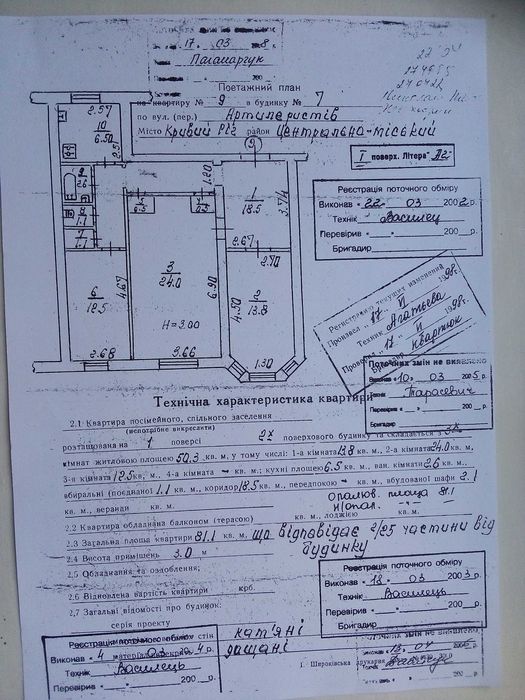 17 03 8 г.
Паламарчук
200
Поетажний план
на квартиру № 9 в будинку № 7
по вул. (пер.) Артилеристів
Місто Кривий Ріг район Центрально-міський
I поверх. Літера "А2"
Реєстрація поточного обміру
Виконав « 22 » 03 2002 р.
Технік Василец
Перевірив « » 200 р.
Бригадир
2.57
10
6.50
2.51
9
2.6
8
1.1
7
1.1
1.20
5
0.5
4
0.5
1
18.5
3.74
2.67
2.70
6
12.5
4.67
3
24.0
6.90
H=3.00
4.50
2
13.8
2.68
3.66
1.30
Регистрация текущих изменений
Произвел " 17 " VI 1998г.
Техник Агатьева
Проверил " 17 " VI 1998г.
Квартюк
Поточних змін не виявлено
Виконав «10» 03 2005 р.
Технік Тарасевич
Перевірив « » 200 р.
Бригадир
Технічна характеристика квартири
2.1 Квартира посімейного, спільного заселення
(непотрібне викреслити)
розташована на 1 поверсі 2х поверхового будинку та складається з 3х
кімнат житловою площею 50.3 кв. м, у тому числі: 1-а кімната 13.8 кв. м., 2-а кімната 24.0 кв. м,
3-я кімната 12.5 кв. м., 4-а кімната – кв. м; кухні площею 6.5 кв. м., ван. кімнати 2.6 кв. м.,
вбиральні (поєднаної) 1.1 кв. м., коридор 18.5 кв. м., передпокою – кв. м., вбудованої шафи 2.1
кв. м., веранди кв. м. опалюв. площа 81.1
2.2 Квартира обладнана балконом (терасою) кв. м., лоджією кв. м.
2.3 Загальна площа квартири 81.1 кв. м, що відповідає 2/25 частини від
будинку
2.4 Висота приміщень 3.0 м
2.5 Обладнання та оздоблення;
2.6 Відновлена вартість квартири крб.
2.7 Загальні відомості про будинок:
серія проекту
Реєстрація поточного обміру
Виконав « 18 » 03 2003 р.
Технік Василець
Перевірив « » 200 р.
Бригадир
Реєстрація поточного обміру
стін кам'яні
Виконав « 4 » 03 2004 р.
дощані
Технік Василець
Перевірив « » 200 р.